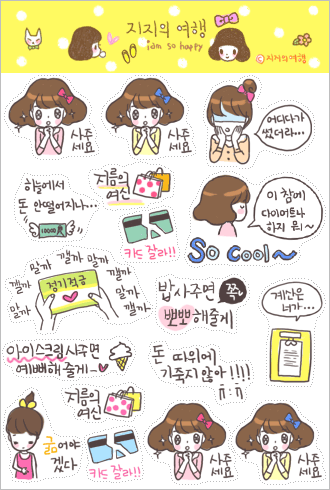 지지의 여행
iam so happy
©지지의여행
사주
세요
사주
세요
어디다가
썼더라...
하늘에서
돈 안떨어지나...
10000
지름의
여신
카드 잘라!!
이 참에
다이어트나
하지 뭐~
So cool~
말까 갤까 말까 갤까
갤까 말까
말까 갤까
정기적금
밥사주면 쪽~
뽀뽀해줄게
계산은
너가...
아이스크림사주면
예뻐해줄게~
돈 따위에
기죽지않아!!!!
지름의
여신
굶어야
겠다
카드 잘라!!
사주
세요
사주
세요